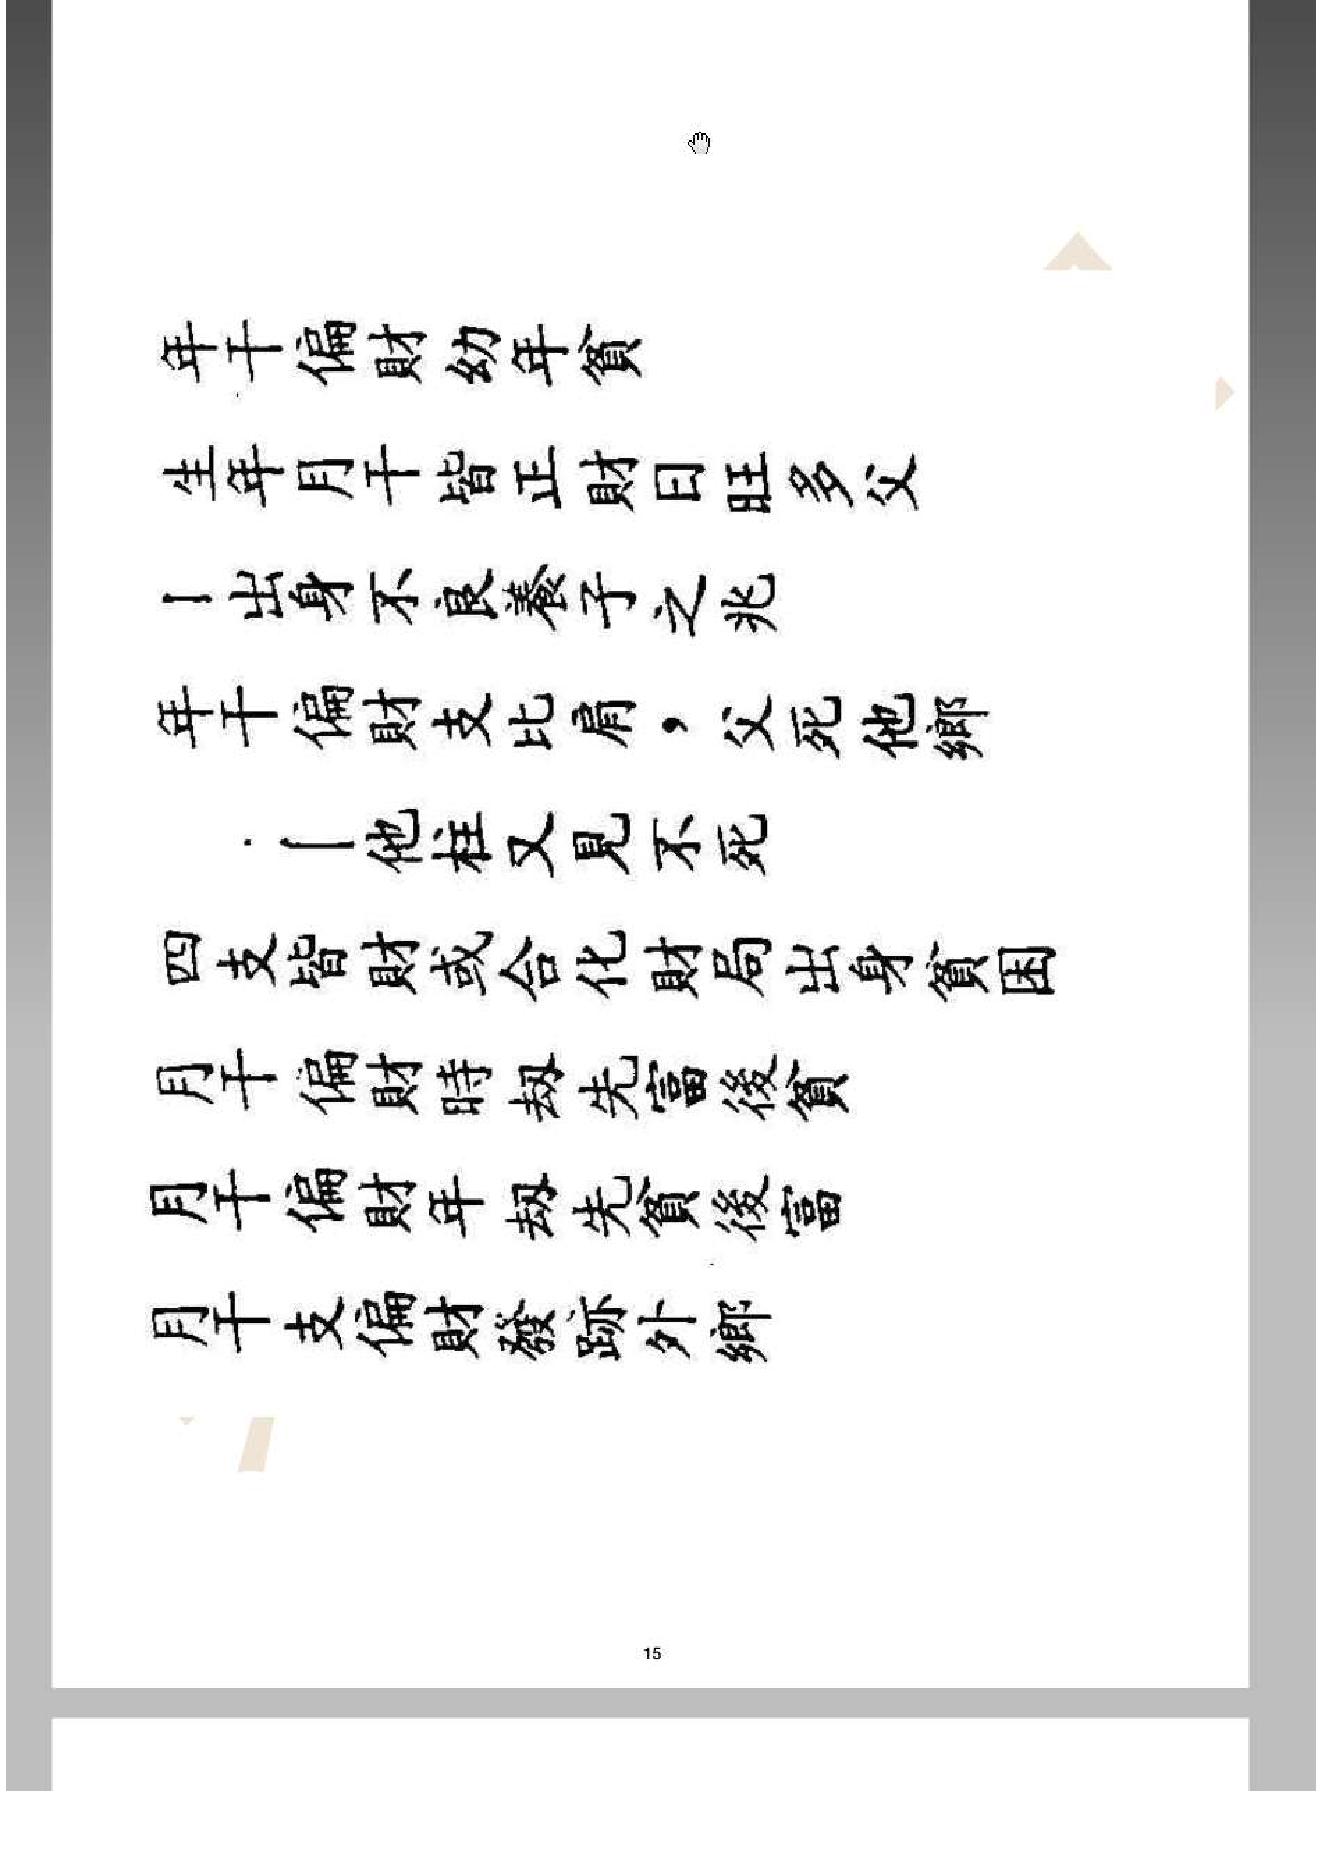 年干偏財幼年貧
生年月干皆正財日旺多父
—出身不良養子之兆
年干偏財支比肩，父死他鄉
—他柱又見不死
四支皆財或合化財局出身貧困
月干偏財時劫先富後貧
月干偏財年劫先貧後富
月干支偏財發跡外鄉
15